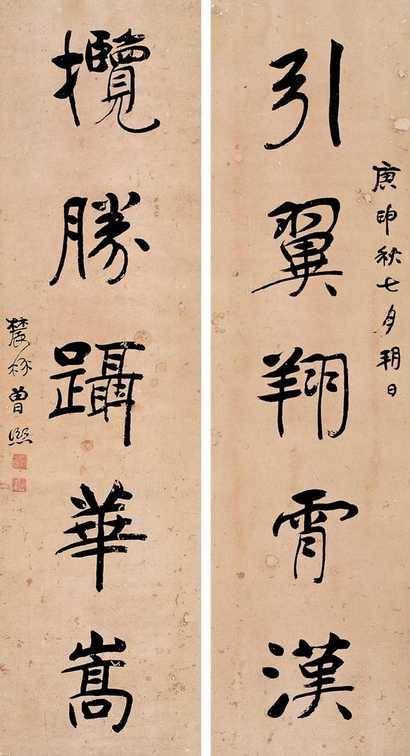 庚申秋七月朔日
引翼翔霄漢
攬勝躡華嵩
農髯曾熙